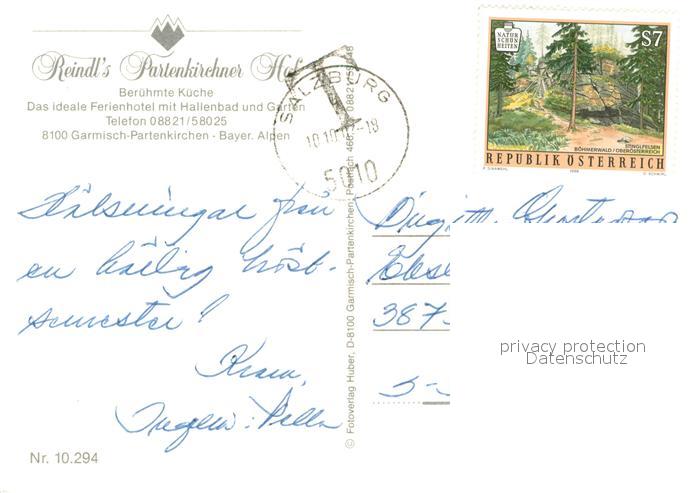 Reindl's Partenkirchner Hof
Berühmte Küche
Das ideale Ferienhotel mit Hallenbad und Garten
Telefon 08821/58025
8100 Garmisch-Partenkirchen - Bayer. Alpen
T
SALZBURG
5010
NATUR
SCHÖN
HEITEN
S7
STINGLFELSEN
BÖHMERWALD / OBERÖSTERREICH
REPUBLIK ÖSTERREICH
Hälsningar från
en härlig höst-
semester!
Kram,
© Fotoverlag Huber, D-8100 Garmisch-Partenkirchen, Postfach
387
S-
privacy protection
Datenschutz
Nr. 10.294